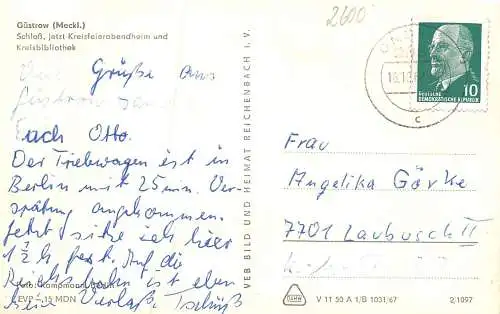 Güstrow (Meckl.)
Schloß, jetzt Kreisfeierabendheim und
Kreisbibliothek
Grüße aus
Güstrow sendet
Euch Otto.
Der Triebwagen ist in
Berlin mit 25 min. Ver-
spätung angekommen.
Jetzt sitze ich hier
1 1/2 h fest. Auf die
Reichsbahn ist eben
kein Verlaß. Tschüß
EVP –,15 MDN
VEB BILD UND HEIMAT REICHENBACH I. V.
2600
DEUTSCHE
DEMOKRATISCHE REPUBLIK
10
c
Frau
Angelika Görke
7701 Laubusch II
V 11 50 A 1/B 1031/67
2/1097